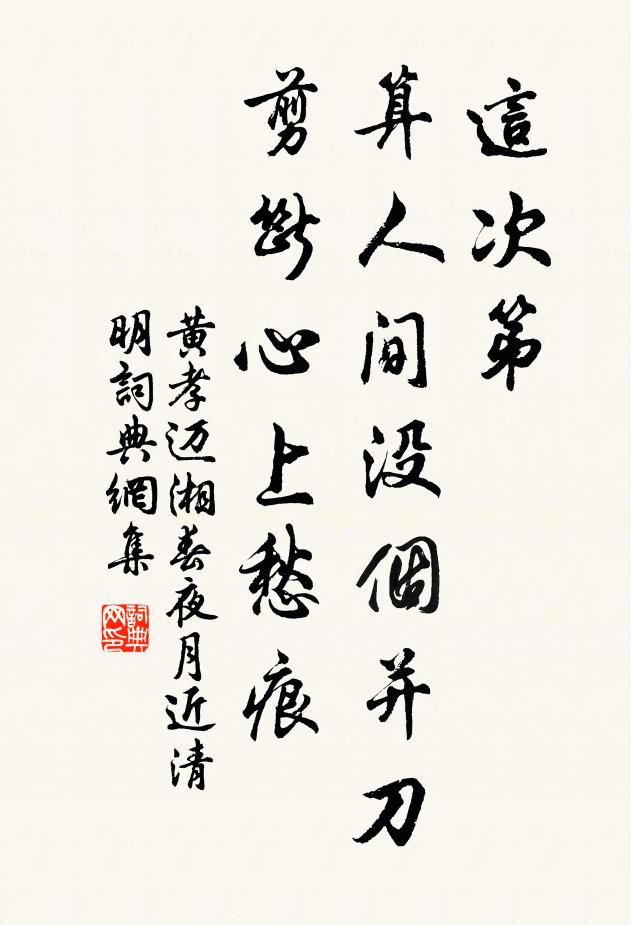 這次第
算人間没個并刀
剪斷心上愁痕
黄孝迈湘春夜月近清
明詞典網集
詞典网印